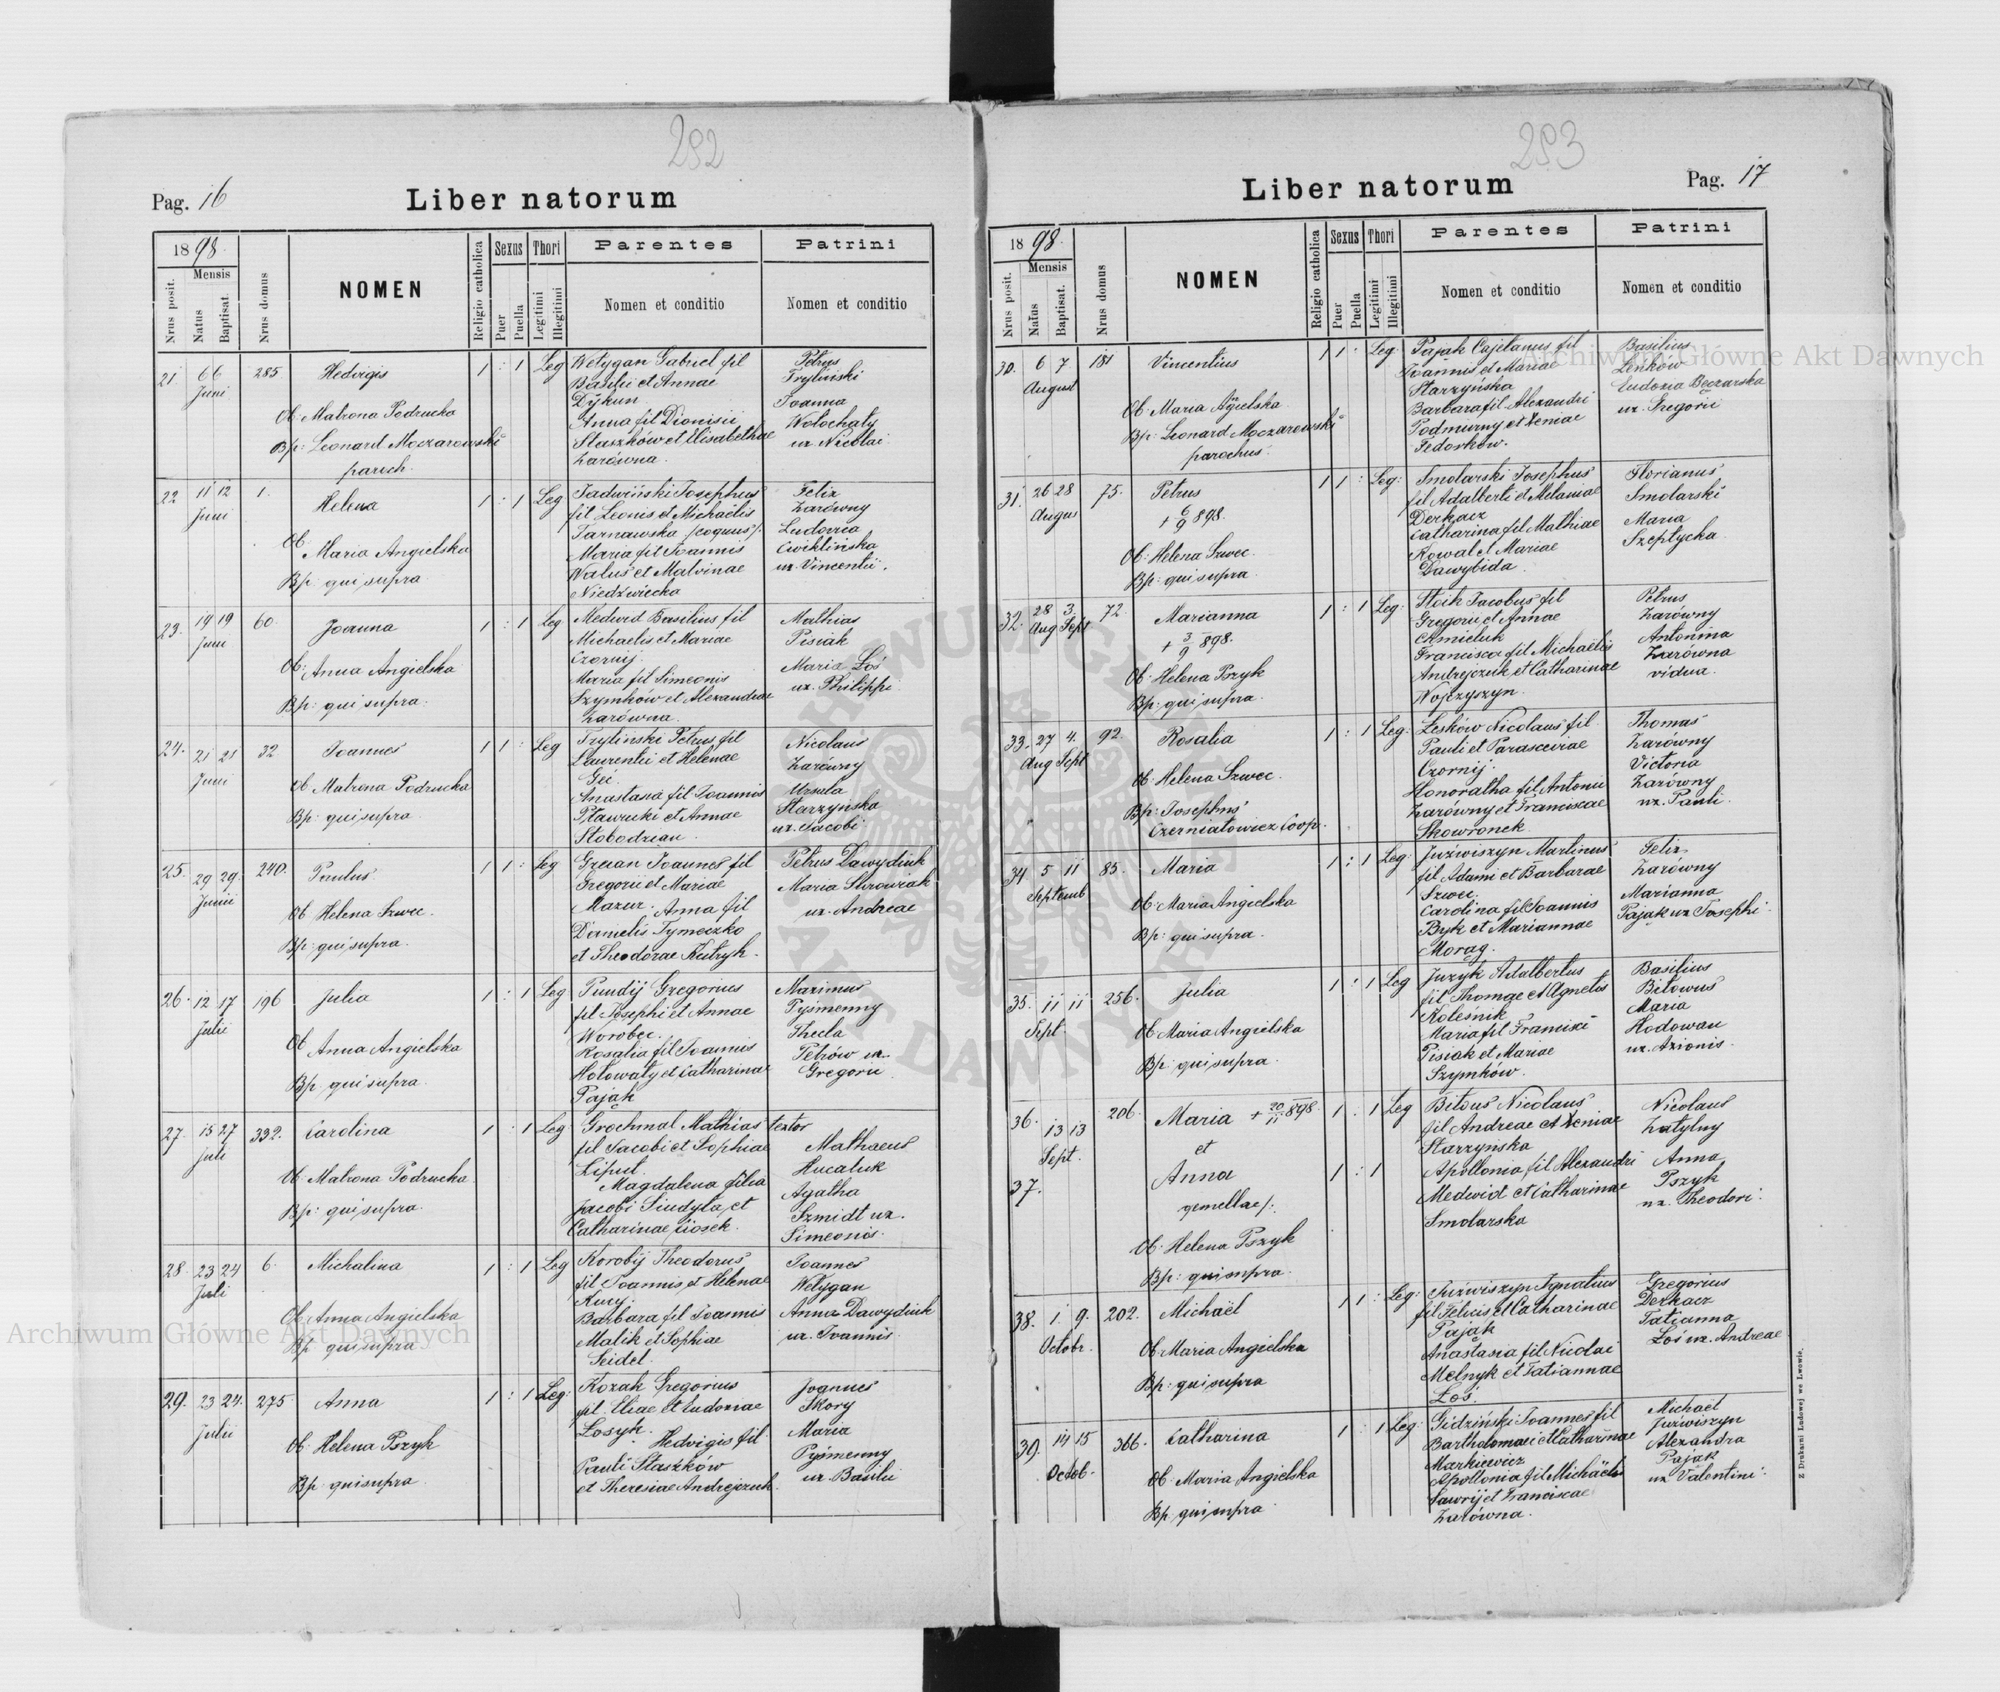 292
Pag. 16
Liber natorum
1898.
Mensis
Nrus posit.
Natus
Baptisat.
Nrus domus
NOMEN
Religio catholica
Sexus
Puer
Puella
Thori
Legitimi
Illegitimi
Parentes
Nomen et conditio
Patrini
Nomen et conditio
21 6 6 285 Hedvigis 1 : 1 Leg
Juni
Ob: Matrona Podrucka
Bp: Leonard Moczarowski
paroch.
Wełygan Gabriel fil
Basilii et Annae
Dÿkun
Anna fil Dionisii
Staszków et Elisabethae
Żarówna.
Petrus
Tryliński
Joanna
Wołochaty
ux. Nicolai
22 11 12 1. Helena 1 : 1 Leg
Juni
Ob:
Maria Angielska
Bp: qui supra
Jadwiński Josephus
fil Leonis et Michaëlis
Tarnawska /coquus/.
Maria fil Joannis
Waluś et Malvinae
Niedźwiecka
Felix
Żarówny
Ludovica
Cwiklińska
ux Vincentii.
23. 19 19 60. Joanna 1 : 1 Leg
Juni
Ob: Anna Angielska
Bp: qui supra.
Medwid Basilius fil
Michaelis et Mariae
Czornij.
Maria fil Simeonis
Szymków et Alexandrae
Żarówna.
Mathias
Pisiak
Maria Łoś
ux. Philippi
24. 21 21 32 Joannes 1 1 : Leg
Juni
Ob Matrona Podrucka
Bp: qui supra.
Tryliński Petrus fil
Laurentii et Helenae
Anastasia fil Joannis
et Annae
Słobodzian.
Nicolaus
Żarówny
Ursula
Starzyńska
ux. Jacobi
25. 29 29. 240. Paulus 1 1 : Leg
Junii
Ob Helena Szwec.
Bp: qui supra.
Joannes fil
Gregorii et Mariae
Mazur. Anna fil
Danielis Tymeczko
et Theodorae Kutryk.
Petrus Dawydiuk
Maria
ux. Andreae
26. 12 17 196 Julia 1 : 1 Leg
Julii
Ob
Anna Angielska
Bp. qui supra.
Pundij Gregorius
fil Josephi et Annae
Worobec.
Rosalia fil Joannis
Hołowaty et Catharinae
Pająk
Maximus
Pyśmenny
Thecla
Petrów ux.
Gregorii
27. 15 27 332. Carolina 1 : 1 Leg
Juli
Ob Matrona Podrucka
Bp: qui supra.
Grochmal Mathias textor
fil Jacobi et Sophiae
Lipul.
Magdalena filia
Jacobi Sindyła et
Catharinae Ciosek.
Mathaeus
Hucaluk
Agatha
Szmidt ux.
Simeonis.
28 23 24 6. Michalina 1 : 1 Leg
Juli
Ob: Anna Angielska
Bp qui supra
Korobij Theodorus
fil Joannis et Helenae
Kucy.
Barbara fil Joannis
Malik et Sophiae
Seidel.
Joannes
Wełygan
Anna Dawydiuk
ux. Joannis
29. 23 24. 275. Anna 1 : 1 Leg:
Julii
Ob: Helena Pszyk
Bp: qui supra
Kozak Gregorius
fil. Eliae et Eudoxiae
Łosyk.
Hedvigis fil
Pauli Staszków
et Theresiae Andrejczuk.
Joannes
Skory
Maria
Pyśmenny
ux Basilii
293
Liber natorum
Pag. 17
1898.
Mensis
Nrus posit.
Natus
Baptisat.
Nrus domus
NOMEN
Religio catholica
Sexus
Puer
Puella
Thori
Legitimi
Illegitimi
Parentes
Nomen et conditio
Patrini
Nomen et conditio
30. 6 7 181 Vincentius 1 1 : Leg:
August
Ob Maria Agielska
Bp: Leonard Moczarowski
parochus.
Pająk Cajetanus fil
Joannis et Mariae
Starzyńska
Barbara fil Alexandri
Podmurny et Xeniae
Fedorków.
Basilius
Leńków
Eudoxia Bęczarska
ux. Gregorii
31. 26 28 75. Petrus 1 1 : Leg:
Augus
+ 6/9 898.
Ob: Helena Szwec.
Bp: qui supra.
Smolarski Josephus
fil Adalberti et Melaniae
Derkacz
Catharina fil Mathiae
Kowal et Mariae
Dawybida.
Florianus
Smolarski
Maria
Szeptycka
32. 28 3. 72 Marianna 1 : 1 Leg:
Aug Sept
+ 3/9 898.
Ob: Helena Pszyk
Bp: qui supra.
Stoik Jacobus fil
Gregorii et Annae
Chmieluk
Francisca fil Michaëlis
Andrejczuk et Catharinae
Wojczyszyn.
Petrus
Żarówny
Antonina
Żarówna
vidua.
33. 27 4. 92. Rosalia 1 : 1 Leg:
Aug Sept
Ob: Helena Szwec.
Bp: Josephus
Czerniatowicz Coop.
Leśków Nicolaus fil
Pauli et Parascevae
Czornij.
Honoratha fil Antonii
Żarówny et Franciscae
Skowronek
Thomas
Żarówny
Victoria
Żarówny
ux. Pauli.
34 5 11 85. Maria 1 : 1 Leg:
Septemb
Ob: Maria Angielska
Bp: qui supra.
Juźwiszyn Martinus
fil Adami et Barbarae
Szwec.
Carolina fil Joannis
Byk et Mariannae
Morąg.
Felix
Żarówny
Marianna
Pająk ux Josephi.
35. 11 11 256. Julia 1 : 1 Leg
Sept.
Ob Maria Angielska
Bp: qui supra.
Juzyk Adalbertus
fil Thomae et Agnetis
Koleśnik
Maria fil Francisci
Pisiak et Mariae
Szymków.
Basilius
Biłowus
Maria
Hodowan
ux. Axionis.
36. 13 13 206. Maria + 20/11 898. 1 : 1 Leg
Sept.
et
37. Anna 1 : 1
gemellae/:
Ob: Helena Pszyk
Bp: qui supra.
Biłous Nicolaus
fil Andreae et Xeniae
Starzyńska
Apollonia fil Alexandri
Medwid et Catharinae
Smolarska
Nicolaus
Anna
Pszyk
ux. Theodori.
38. 1. 9. 202. Michaël 1 1 : Leg:
Octobr.
Ob Maria Angielska
Bp: qui supra
Juźwiszyn Ignatius
fil Felicis et Catharinae
Pająk
Anastasia fil Nicolai
Melnyk et Tatiannae
Łoś.
Gregorius
Derkacz
Tatianna
Łoś ux. Andreae
39. 14 15 366. Catharina 1 : 1 Leg:
Octob.
Ob: Maria Angielska
Bp. qui supra
Gidziński Joannes fil
Bartholomaei et Catharinae
Markiewicz
Apollonia fil Michaëlis
Ławrij et Franciscae
Żarówna.
Michaël
Juźwiszyn
Alexandra
Pająk
ux Valentini.
Z Drukarni Ludowej we Lwowie.
Archiwum Główne Akt Dawnych
Archiwum Główne Akt Dawnych